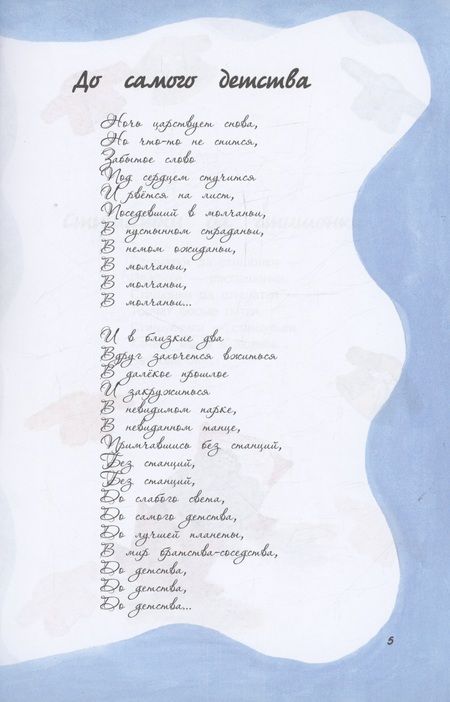 До самого детства
Ночь царствует снова,
Но что-то не спится,
Забытое слово
Под сердцем стучится
И рвётся на лист,
Поседевший в молчаньи,
В пустынном страданьи,
В немом ожиданьи,
В молчаньи,
В молчаньи,
В молчаньи...
И в близкие два
Вдруг захочется вжиться
В далёкое прошлое
И закружиться
В невидимом парке,
В невиданном танце,
Примчавшись без станций,
Без станций,
Без станций,
До слабого света,
До самого детства,
До лучшей планеты,
В мир братства-соседства,
До детства,
До детства,
До детства...
5